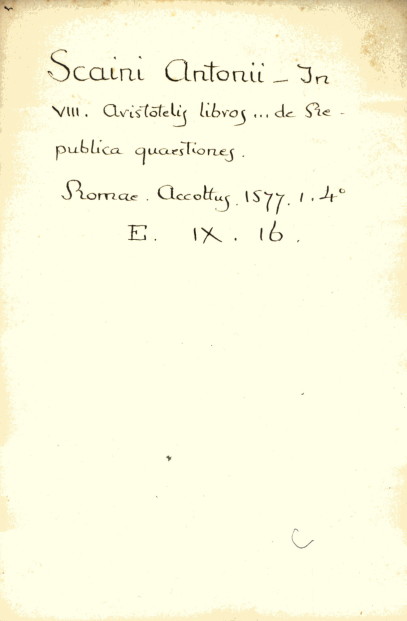 Scaini Antonii – In
VIII. Aristotelis libros ... de Re-
publica quaestiones.
Romae. Accoltus. 1577. 1. 4°
E. IX. 16.